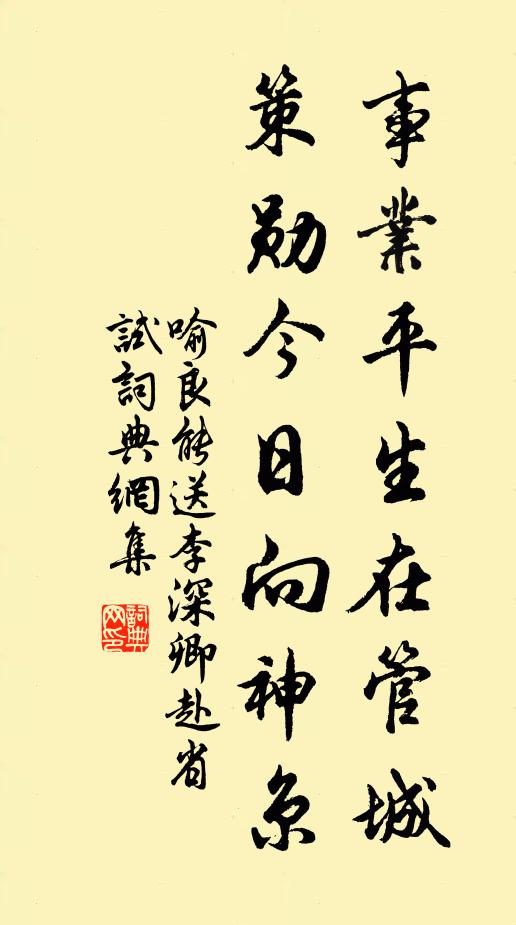 事業平生在管城
策勛今日向神京
喻良能送李深卿赴省
試詞典網集
詞典網印